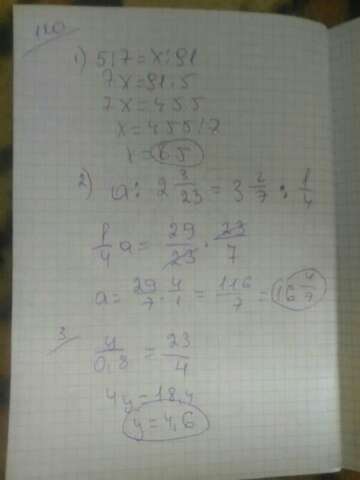 1) 5:7=x:91
7x=91·5
7x=455
x=455:7
x=65
2) a:2 3/23=3 2/7:1/4
1/4 a=29/23·23/7
a=29/7·4/1=116/7=16 4/7
3
y/0,8=23/4
4y=18,4
y=4,6